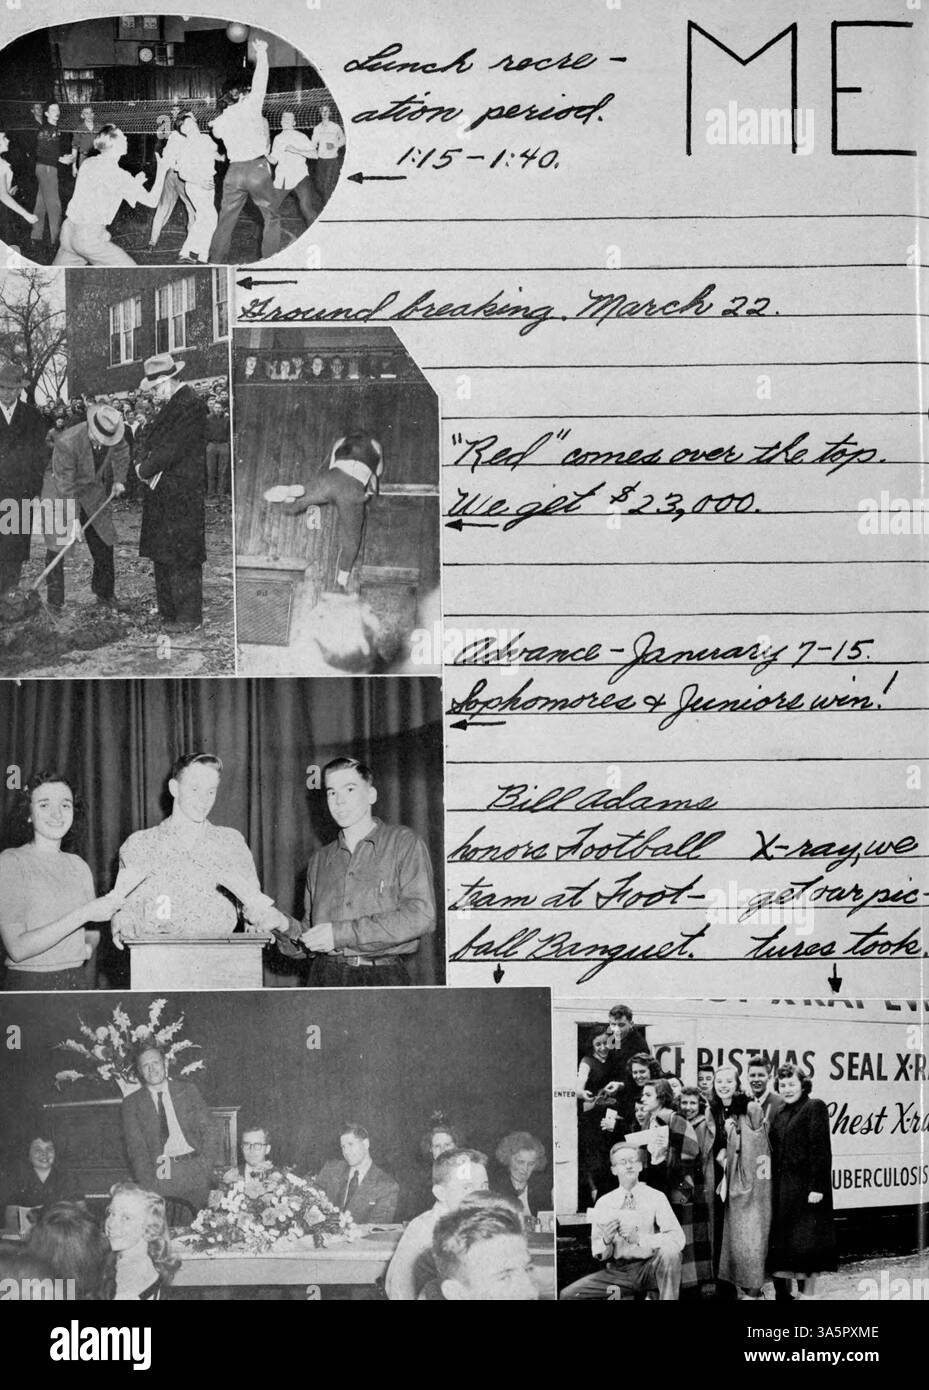 ME
Lunch recre-
ation period.
1:15-1:40.
Ground breaking. March 22.
"Red" comes over the top.
We get $23,000.
Advance-January 7-15.
Sophomores & Juniors win!
Bill Adams
honors Football
team at Foot-
ball Banquet.
X-ray, we
get our pic-
tures took.
CHRISTMAS SEAL X-RA
Chest X-ra
UBERCULOSIS
ENTER
alamy
Image ID: 3A5PXME
www.alamy.com